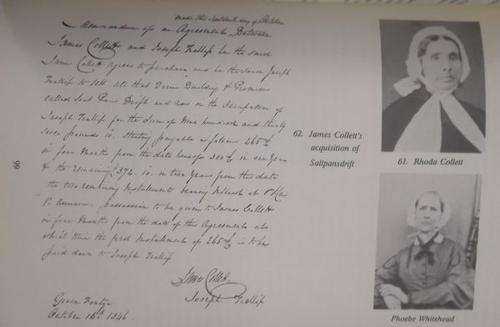 made this sixteenth day of October
Memorandum of an Agreement Between
James Collett and Joseph Trollip he the said
James Collett agrees to purchase and he the said Joseph
Trollip to sell all that Farm Building & Premises
called Salt Pans Drift and now in the Occupation of
Joseph Trollip for the Sum of Nine hundred and thirty
Sterling payable as follows 265£
in four Months from the date hereof in one Year
& the remaining in two Years from this date
the two remaining Instalments bearing Interest at
possession to be given to James Collett
in four Months from the date of this Agreement
when the first Instalment of 265£ is to be
paid down to Joseph Trollip
James Collett
Joseph Trollip
Green Fountain
October 16th 1846
62. James Collett's
acquisition of
Saltpansdrift
61. Rhoda Collett
Phoebe Whitehead
66